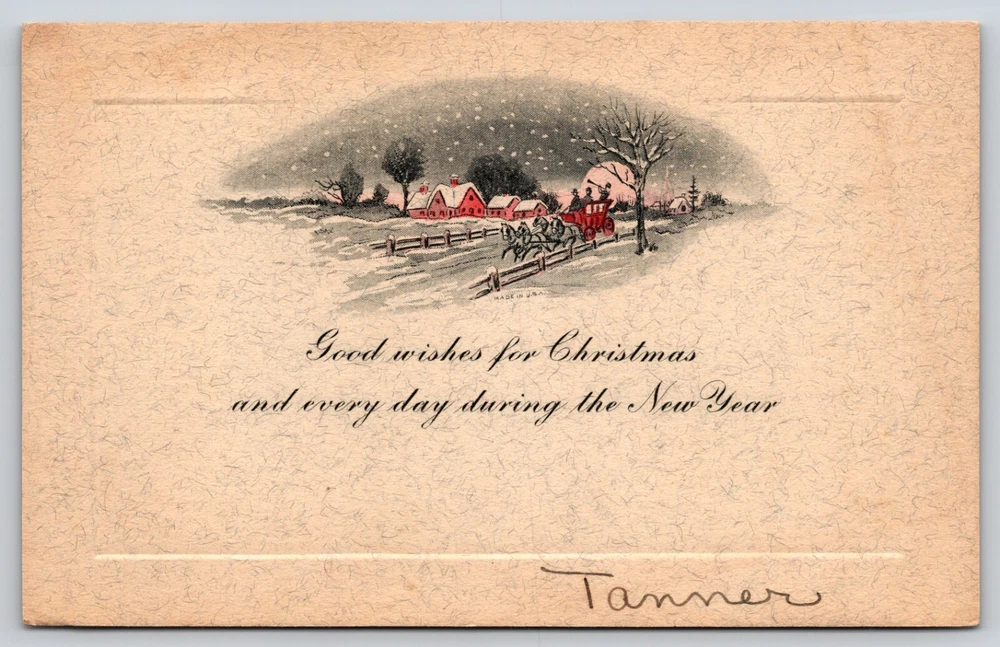 MADE IN U.S.A.
Good wishes for Christmas
and every day during the New Year
Tanner